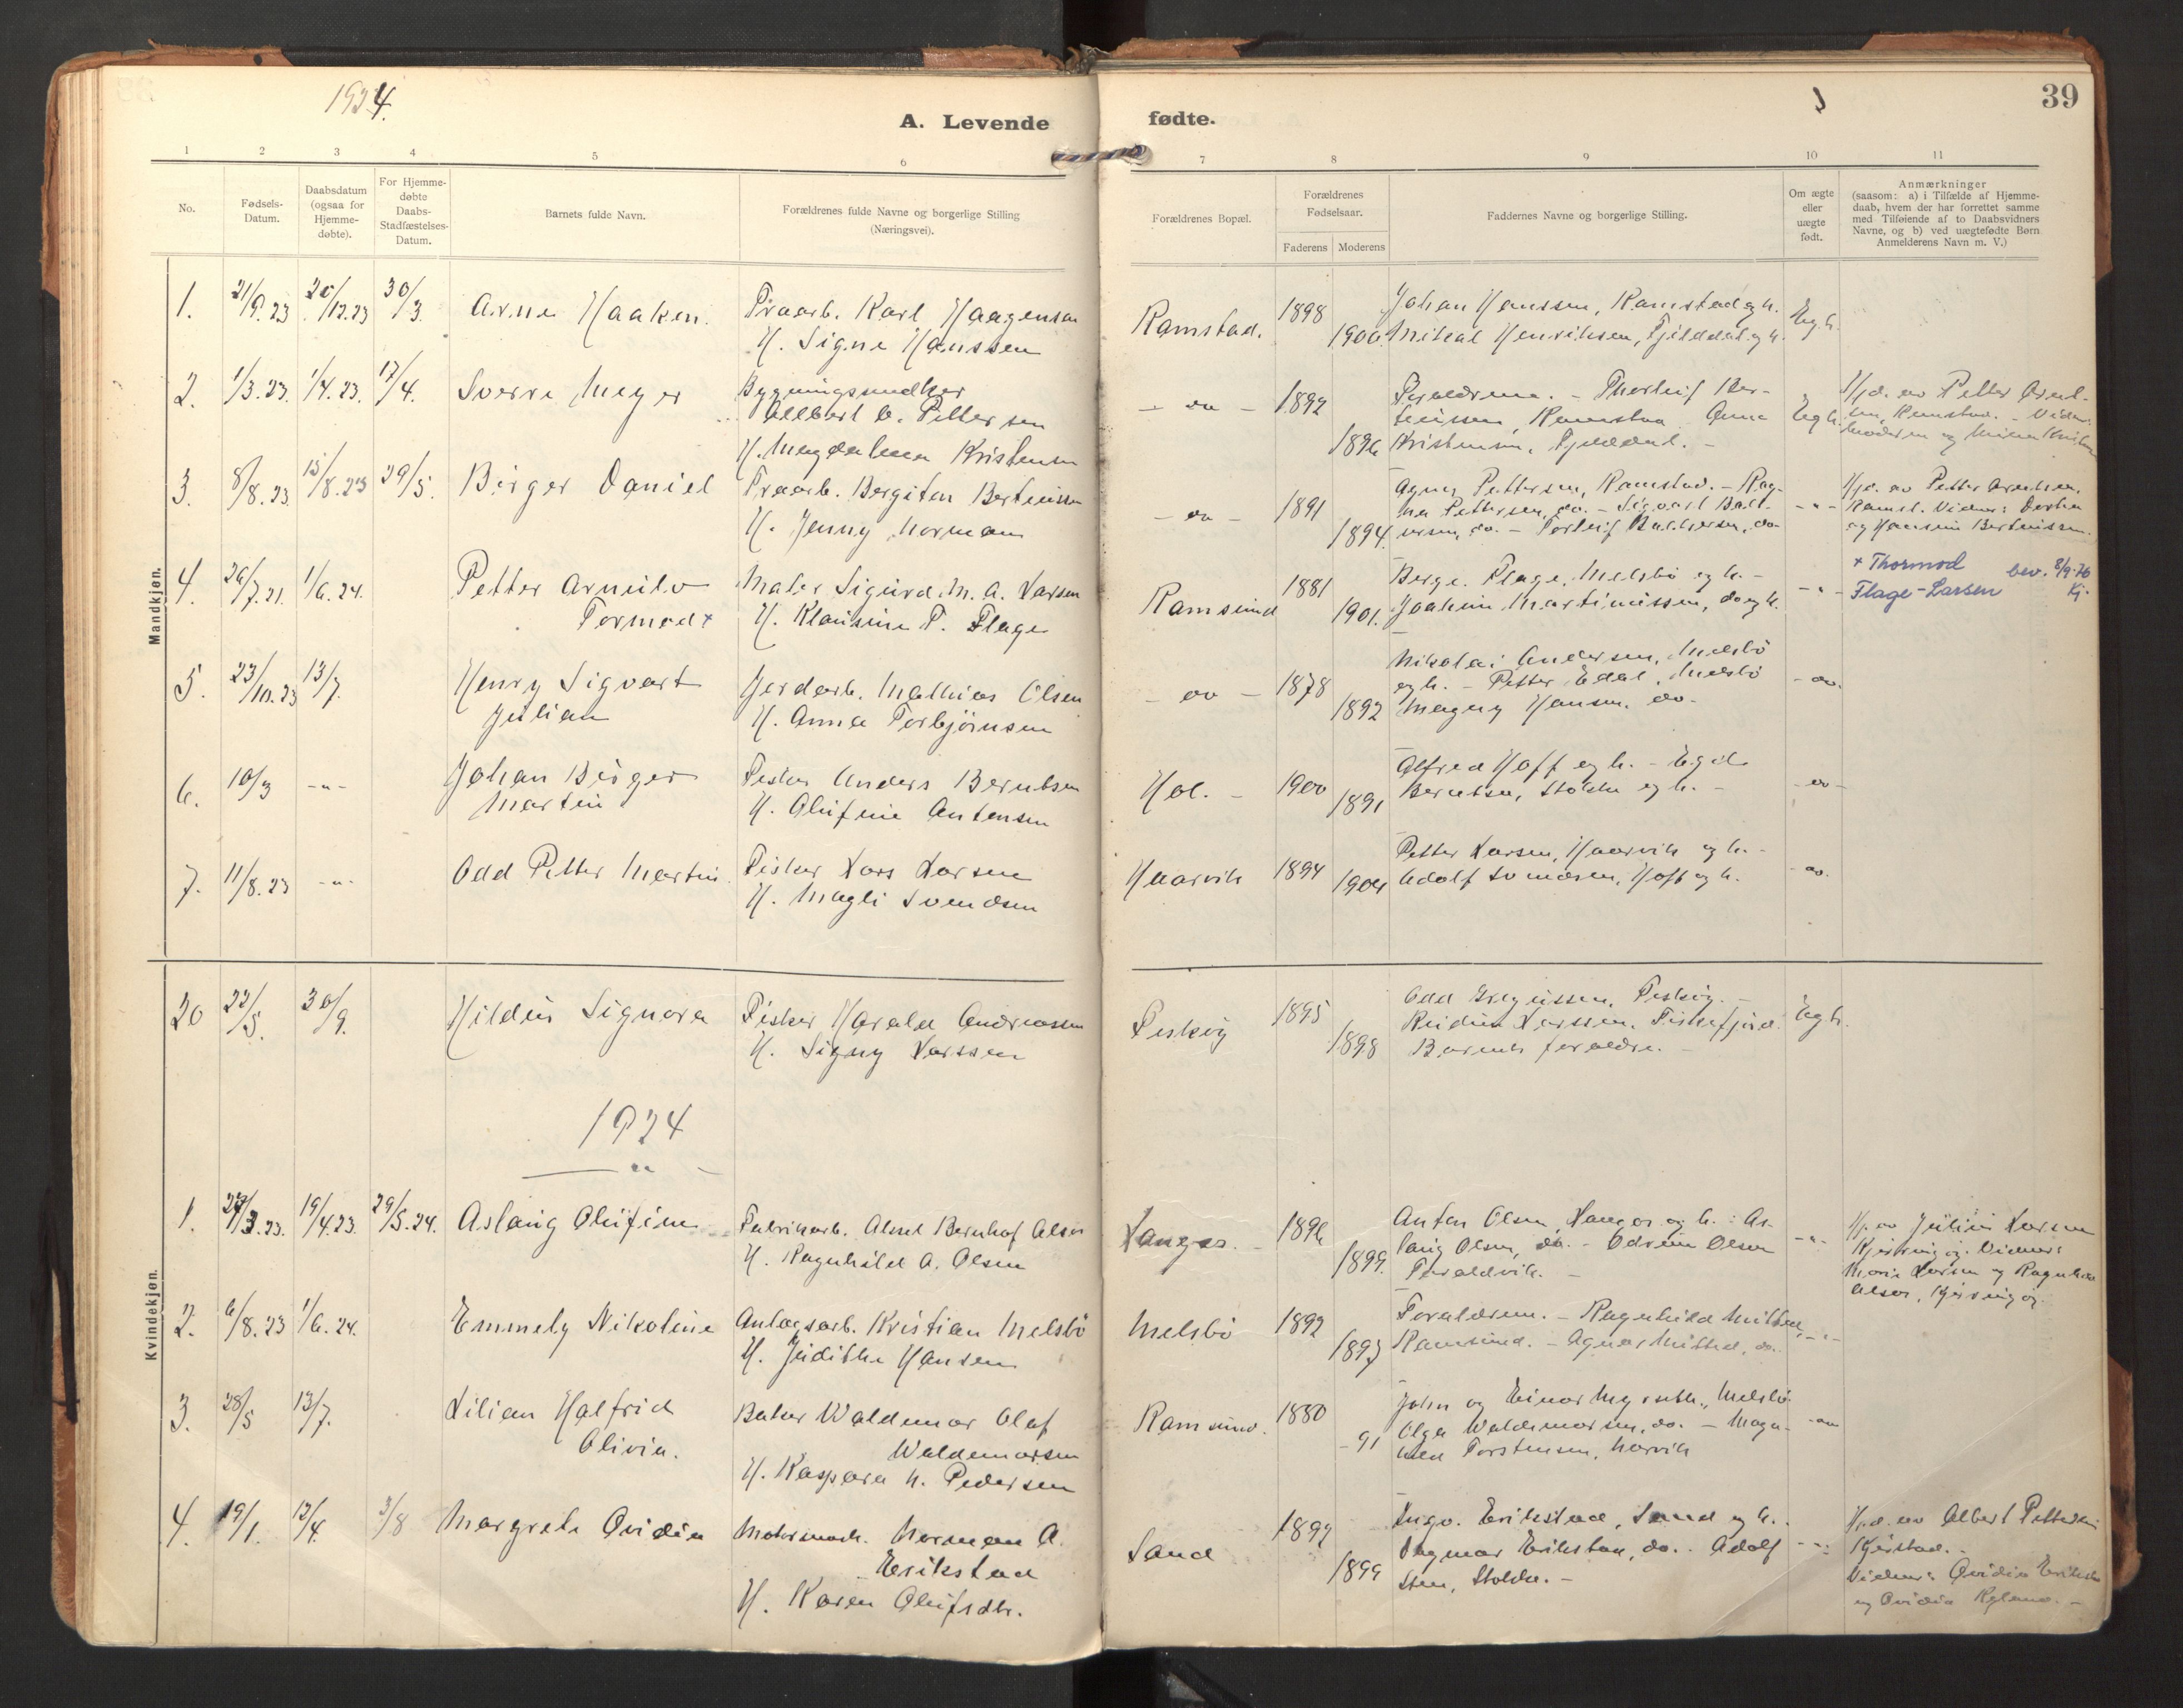 1924.
A. Levende
fødte.
39
1 2 3 4 5 6
7 8 9 10 11
No.
Fødsels-
Datum.
Daabsdatum
(ogsaa for
Hjemme-
døbte).
For Hjemme-
døbte
Daabs-
Stadfæstelses-
Datum.
Barnets fulde Navn.
Forældrenes fulde Navne og borgerlige Stilling
(Næringsvei).
Forældrenes Bopæl.
Forældrenes
Fødselsaar.
Faderens Moderens
Faddernes Navne og borgerlige Stilling.
Om ægte
eller
uægte
født.
Anmærkninger
(saasom: a) i Tilfælde af Hjemme-
daab, hvem der har forrettet samme
med Tilføiende af to Daabsvidners
Navne, og b) ved uægtefødte Børn
Anmelderens Navn m. V.)
Mandkjøn.
1. 21/9.23 20/12.23 30/3. Arne Haaken.
Praarb. Karl Haagensen
H. Signe Hanssen
Ramstad. 1898
1900.
Johan Hanssen, Ramstad og h.
Mikal Henriksen, Fjelddal og h.
Egte.
2. 1/3.23. 1/4.23. 17/4. Sverre Meyer
Bygningssnedker
Albert O. Pettersen
H. Magdalena Kristensen
- do - 1892
1896
Foraldrene. - Thorleif Ber-
teussen, Ramstad Anna
Kristensen, Fjelddal. -
Egte.
Hjd. av Petter Arent-
sen, Ramstad.
3. 8/8.23. 15/8.23 29/5. Birger Daniel
Praarb. Bergiton Berteussen
H. Jenny Norman
- do - 1891
1894.
Agnes Pettersen, Ramstad. - Rag-
na Pettersen, do. - Sigvart Balt-
sersen, do. - Torleif Baltsersen, do
- " -
Hjd. av Petter Arentsen,
Ramst. Vidner: Dorthea
og Hansine Berteussen.
4. 26/7.21. 1/6.24. Petter Arnulv
Tormod +
Maler Sigurd M. A. Larsen
H. Klausine P. Flage
Ramsund 1881
1901.
Berge Flage, Melsbö og h. -
Joakim Martinussen, do og h.
- " -
+ Thormod
Flage-Larsen
bev. 8/9-76
Kj.
5. 23/10.23 13/7. Henry Sigvart
Julian
Jordarb. Mathias Olsen
H. Anna Torbjörnsen
- do - 1878
1892
Nikolai Andersen, Melsbö
og h. - Petter Edal, Melsbö
Magny Hansen, do.
- do.
6. 10/3 - " - Johan Birger
Martin
Fisker Anders Berntsen
H. Olufine Antonsen
Hol. - 1900
1891
Alfred Hoff og h. - Egil
Berntsen, Stokke og h. -
- do -
7. 11/8.23 - " - Odd Petter Martin
Fisker Lars Larsen
H. Magli Svendsen
Haarvik 1894
1904
Petter Larsen, Haarvik og h. -
Adolf Svendsen, Hoff og h.
- do.
20 22/5. 30/9. Hildur Signora
Fisker Harald Andreassen
H. Signy Larssen
Peskøy 1895
1898
Odd Gregussen, Peskøy. -
Reidun Larssen, Fiskefjord.
Barnets foraldre. -
Egte.
1924
Kvindekjøn.
1. 27/3.23. 19/4.23. 29/5.24. Aslaug Olufine
Fabrikarb. Aksel Bernhof Olsen
H. Ragnhild A. Olsen
Hanges. - 1896
1899.
Anton Olsen, Hanges og h. : As-
laug Olsen, do. - Odrun Olsen
Foraldvik. -
- " -
Hj. av Julius Larsen
Vidner:
Marie Larsen og Ragnhild
Olsen,
2. 6/8.23 1/6.24. Emmely Nikoline
Anlægsarb. Kristian Melsbö
H. Judithe Hansen
Melsbö 1892
1897
Foraldrene. - Ragnhild
Ramsund. - Agnar
- " -
3. 28/5 13/7. Lilian Halfrid
Olivia.
Baker Waldemar Olaf
Waldemarsen
H. Kaspara N. Pedersen
Ramsund. 1880
- 91
John og Einar Myrseth, Melsbö
Olga Waldemarsen, do. - Magn-
hild Torstensen, Narvik
- do
4. 19/1. 13/4. 3/8 Margrete Ovidia
Motormask. Norman A.
Erikstad
H. Karen Olufsdtr.
Sand 1897
1899
Ingv. Erikstad, Sand og h.
Dagmar Erikstad, do. . Adolf
Steen, Stokke. -
- " -
Hjd. av Albert Pettersen
Kjerstad. -
Vidner: Ovidia Erikstad
og Ovidia Ryland. -